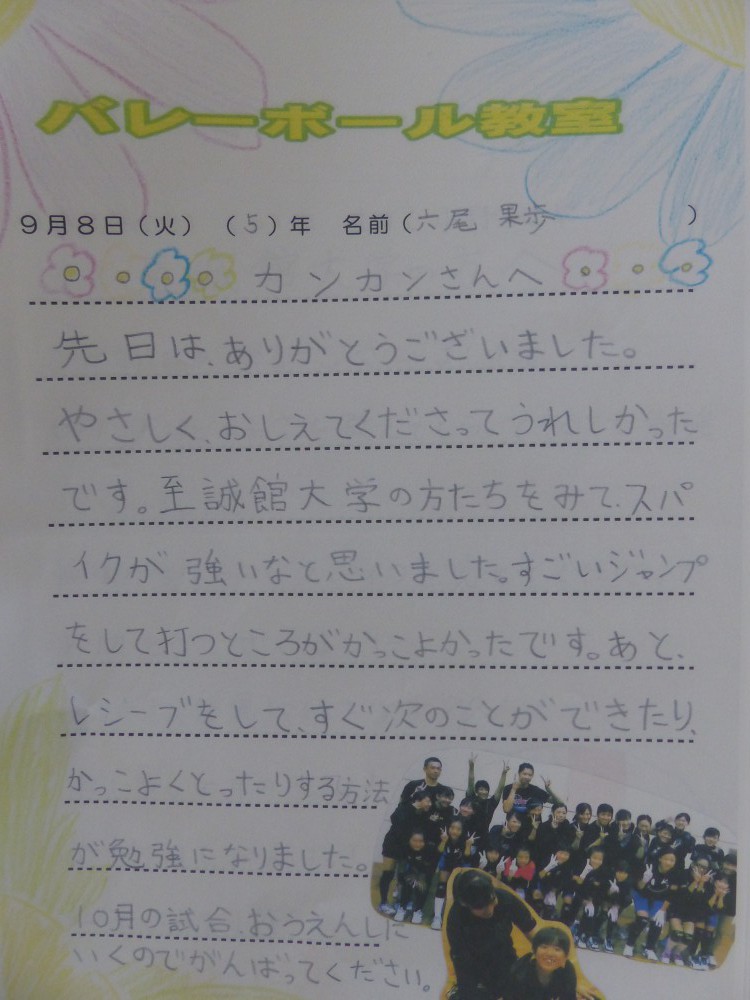 バレーボール教室
9月8日(火) (5)年 名前(六尾 果歩 )
カンカンさんへ
先日は、ありがとうございました。
やさしく、おしえてくださってうれしかった
です。至誠館大学の方たちをみて、スパ
イクが強いなと思いました。すごいジャンプ
をして打つところがかっこよかったです。あと、
レシーブをして、すぐ次のことができたり、
かっこよくとったりする方法
が勉強になりました。
10月の試合、おうえんしに
いくのでがんばってください。